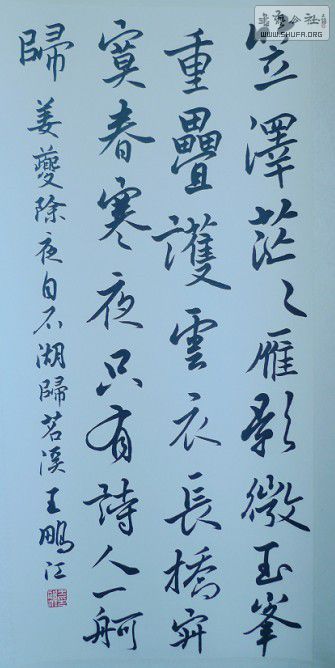 笠澤茫〻雁影微玉峯
重疊護雲衣長橋寂
寞春寒夜只有詩人一舸
歸
姜夔除夜自石湖歸苕溪王鵬江
書藝公社
WWW.SHUFA.ORG